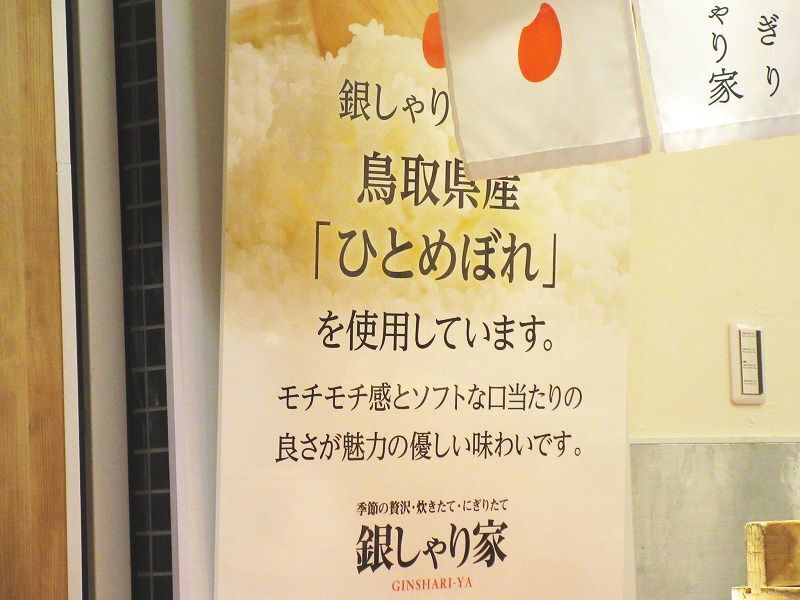 銀しゃり
鳥取県産
「ひとめぼれ」
を使用しています。
モチモチ感とソフトな口当たりの
良さが魅力の優しい味わいです。
季節の贅沢・炊きたて・にぎりたて
銀しゃり家
GINSHARI-YA
ぎり
ゃり家